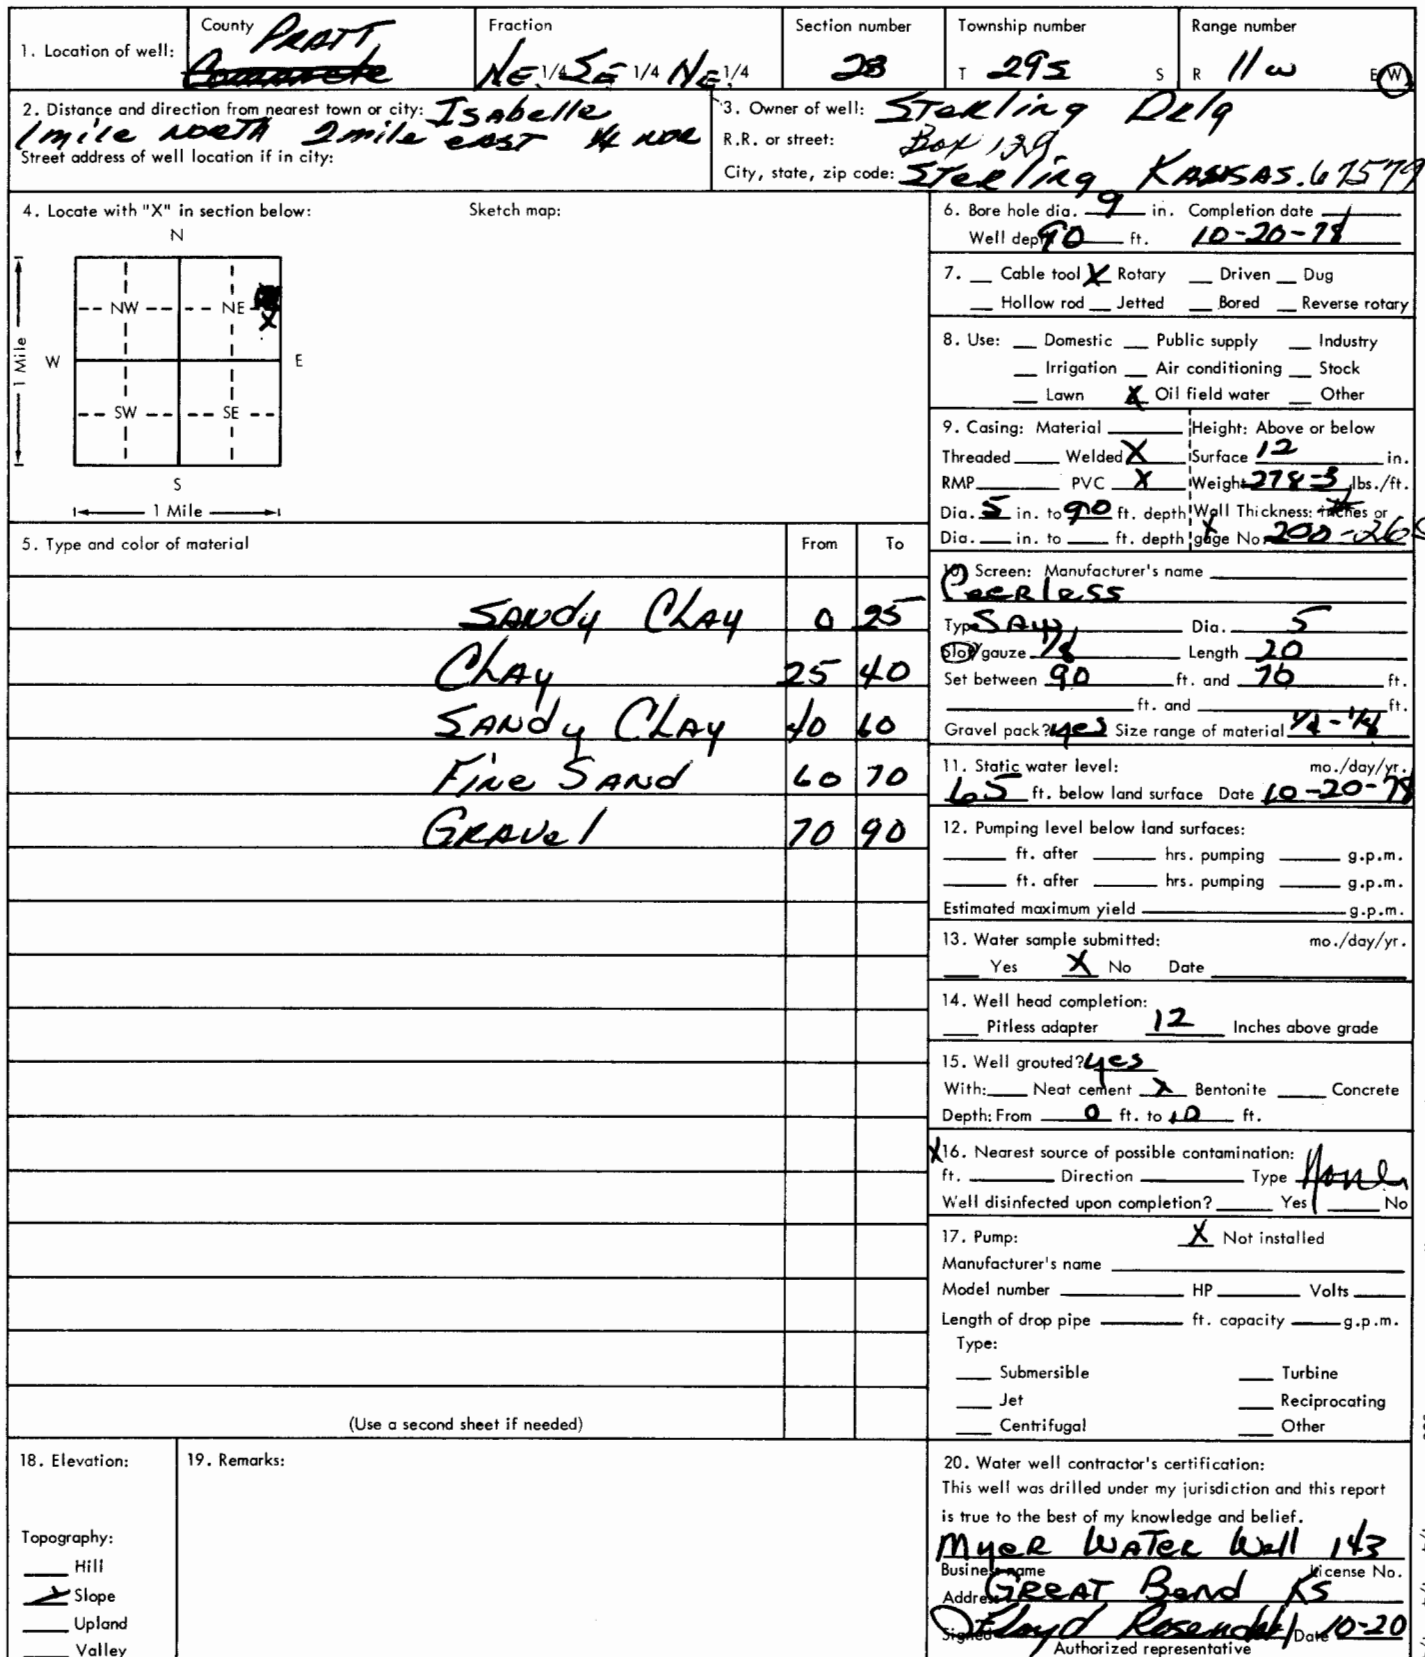 1. Location of well:
County PRATT
Fraction
NE 1/4 SE 1/4 NE 1/4
Section number
23
Township number
T 29s S
Range number
R 11w E W
2. Distance and direction from nearest town or city: Isabelle
1 mile NORTH 2 mile east 1/4 NOR
Street address of well location if in city:
3. Owner of well: Sterling Drlg
R.R. or street: Box 129
City, state, zip code: Sterling KANSAS. 67579
4. Locate with "X" in section below: Sketch map:
N
NW NE
X
W E
SW SE
S
1 Mile
1 Mile
5. Type and color of material From To
SANdy CLAy 0 25
CLAy 25 40
SANdy CLAy 40 60
Fine SANd 60 70
GRAVel 70 90
(Use a second sheet if needed)
6. Bore hole dia. 9 in. Completion date
Well depth 90 ft. 10-20-78
7. Cable tool X Rotary Driven Dug
Hollow rod Jetted Bored Reverse rotary
8. Use: Domestic Public supply Industry
Irrigation Air conditioning Stock
Lawn X Oil field water Other
9. Casing: Material Height: Above or below
Threaded Welded X Surface 12 in.
RMP PVC X Weight 278-3 lbs./ft.
Dia. 5 in. to 90 ft. depth Wall Thickness: inches or
Dia. in. to ft. depth gage No. 200-265
10. Screen: Manufacturer's name
Peerless
Type SAW Dia. 5
Slot/gauze 1/8 Length 20
Set between 90 ft. and 70 ft.
ft. and ft.
Gravel pack? yes Size range of material 1/4-1/8
11. Static water level: mo./day/yr.
65 ft. below land surface Date 10-20-78
12. Pumping level below land surfaces:
ft. after hrs. pumping g.p.m.
ft. after hrs. pumping g.p.m.
Estimated maximum yield g.p.m.
13. Water sample submitted: mo./day/yr.
Yes X No Date
14. Well head completion:
Pitless adapter 12 Inches above grade
15. Well grouted? yes
With: Neat cement X Bentonite Concrete
Depth: From 0 ft. to 10 ft.
X 16. Nearest source of possible contamination:
ft. Direction Type None
Well disinfected upon completion? Yes No
17. Pump: X Not installed
Manufacturer's name
Model number HP Volts
Length of drop pipe ft. capacity g.p.m.
Type:
Submersible Turbine
Jet Reciprocating
Centrifugal Other
18. Elevation:
Topography:
Hill
X Slope
Upland
Valley
19. Remarks:
20. Water well contractor's certification:
This well was drilled under my jurisdiction and this report
is true to the best of my knowledge and belief.
Myer WATer Well 143
Business name License No.
Address GREAT Bend KS
Signed Floyd Rosendahl Date 10-20
Authorized representative